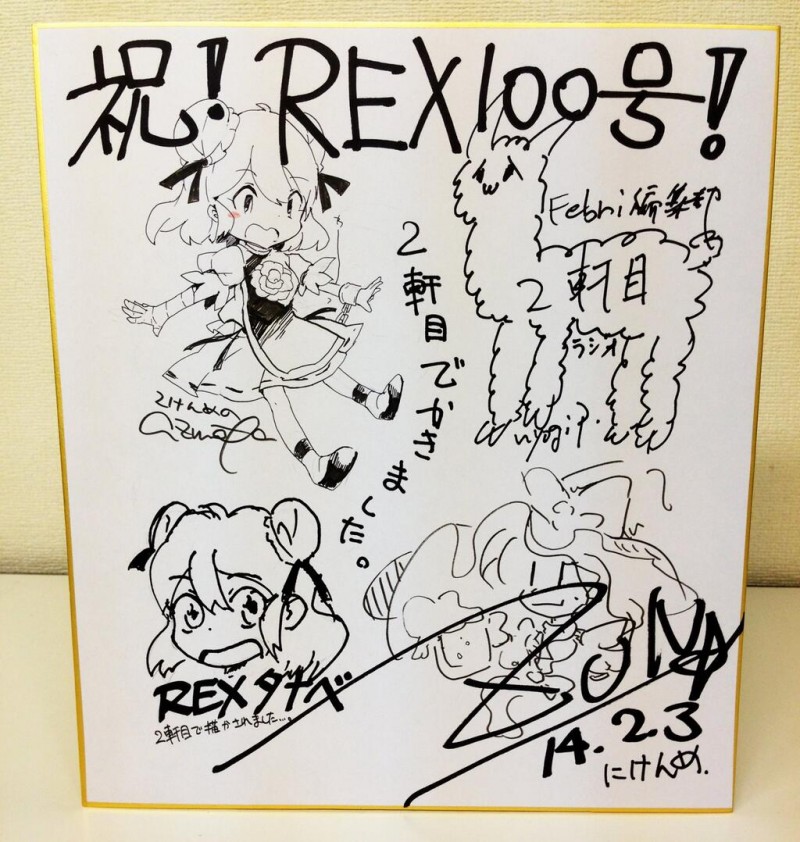 祝！REX100号！
Febri編集部
2軒目
ラジオ
2軒目でかきました。
2けんめの
azmaya
REXタナベ
2軒目で描かされました…。
ZUN
14.2.3
にけんめ.